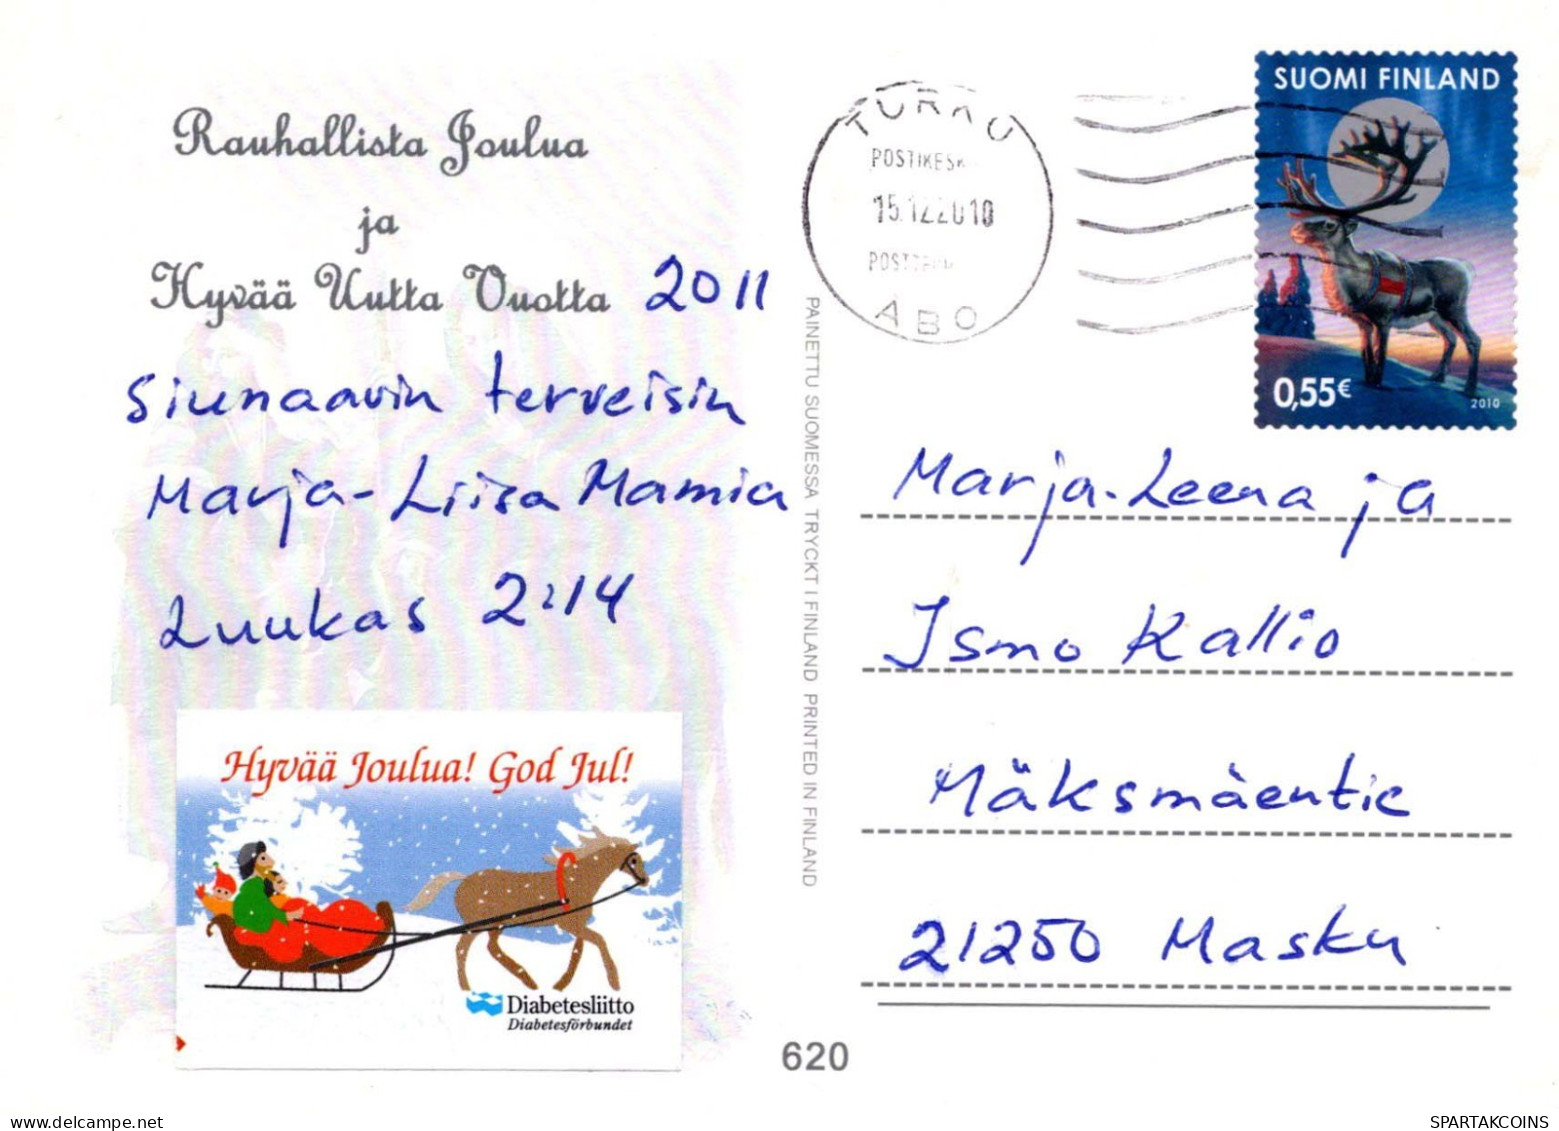 Rauhallista Joulua
ja
Hyvää Uutta Vuotta 2011
Siunaavin terveisin
Marja-Liisa Mamia
Luukas 2:14
Hyvää Joulua! God Jul!
Diabetesliitto
Diabetesförbundet
620
PAINETTU SUOMESSA TRYCKT I FINLAND PRINTED IN FINLAND
TURKU
POSTIKESK
15.12.2010
ÅBO
SUOMI FINLAND
0,55€
2010
Marja-Leena ja
Ismo Kallio
Mäksmäentie
21250 Masku
SPARTAKCOINS
delcampe.net